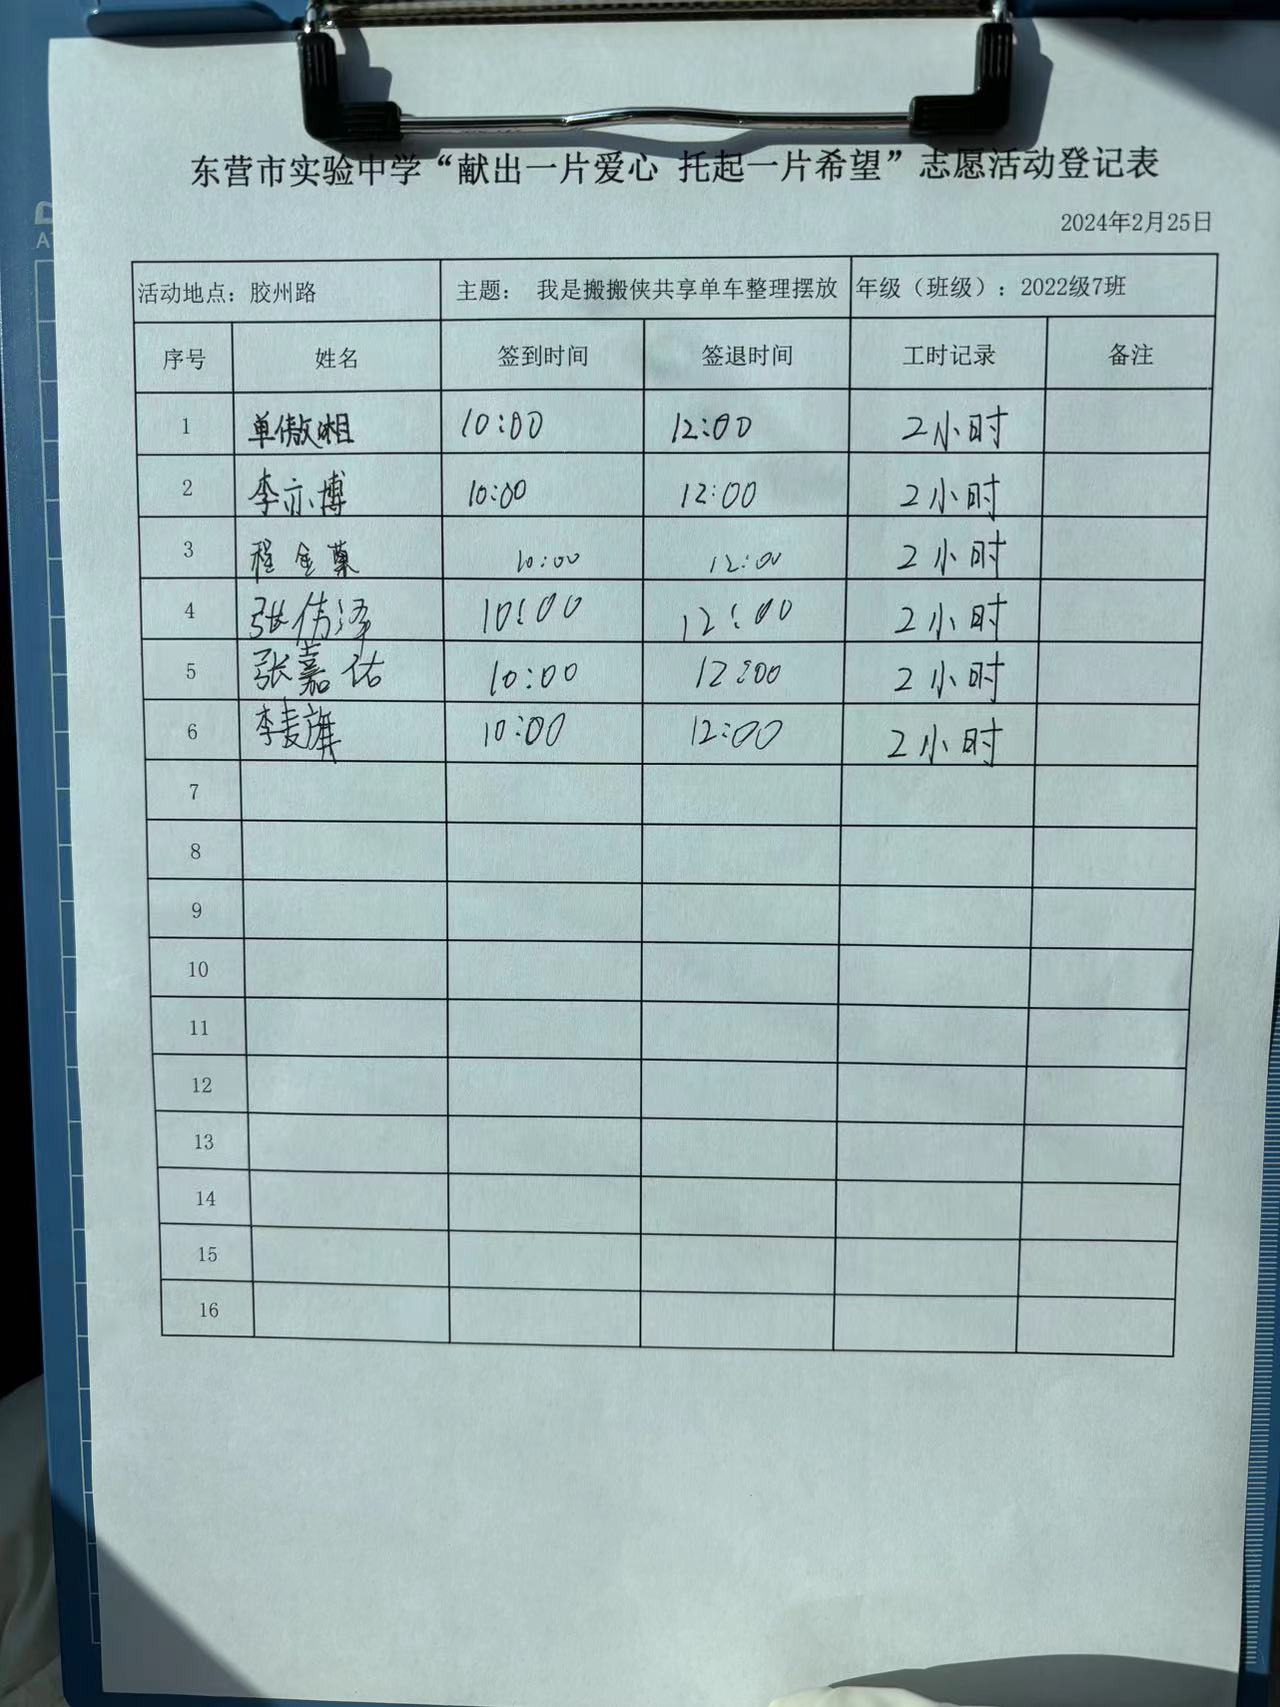 东营市实验中学“献出一片爱心 托起一片希望”志愿活动登记表
2024年2月25日
活动地点：胶州路 主题： 我是搬搬侠共享单车整理摆放 年级（班级）：2022级7班
序号 姓名 签到时间 签退时间 工时记录 备注
1 单傲湘 10:00 12:00 2小时
2 李亦博 10:00 12:00 2小时
3 程金 10:00 12:00 2小时
4 张伟泽 10:00 12:00 2小时
5 张嘉佑 10:00 12:00 2小时
6 李麦旗 10:00 12:00 2小时
7
8
9
10
11
12
13
14
15
16